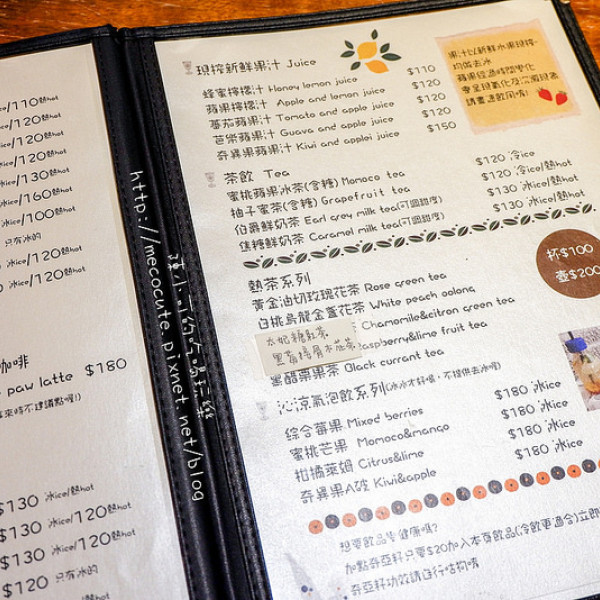 冰ice/110熱hot
冰ice/120熱hot
冰ice/120熱hot
冰ice/120熱hot
冰ice/130熱hot
冰ice/160熱hot
冰ice/100熱hot
只有冰的
冰ice/120熱hot
冰ice/120熱hot
咖啡
paw latte $180
$130 冰ice/熱hot
$130 冰ice/120熱hot
$130 冰ice/120熱hot
$120 只有冰的
http://mecocute.pixnet.net/blog
現榨新鮮果汁 Juice
蜂蜜檸檬汁 Honey lemon juice $110
蘋果檸檬汁 Apple and lemon juice $120
蕃茄蘋果汁 Tomato and apple juice $120
芭樂蘋果汁 Guava and apple juice $120
奇異果蘋果汁 Kiwi and applei juice $150
果汁以新鮮水果現榨,
均無去冰
蘋果經過時間變化
會呈現氧化及沉澱現象
請盡速飲用唷!
茶飲 Tea
蜜桃蘋果冰茶(含糖) Momoco tea $120 冷ice
柚子蜜茶(含糖) Grapefruit tea $120 冷ice/熱hot
伯爵鮮奶茶 Earl grey milk tea(可調甜度) $130 冰ice/熱hot
焦糖鮮奶茶 Caramel milk tea(可調甜度) $130 冰ice/熱hot
熱茶系列
杯$100
壺$200
黃金油切玫瑰花茶 Rose green tea
白桃烏龍金盞花茶 White peach oolong
Chamomile&citron green tea
太妃糖紅茶
aspberry&lime fruit tea
黑醋栗果茶 Black currant tea
沁涼氣泡飲系列(冰冰才好喝,不提供去冰喔)
綜合莓果 Mixed berries $180 冰ice
蜜桃芒果 Momoco&mango $180 冰ice
柑橘萊姆 Citrus&lime $180 冰ice
奇異果A啵 Kiwi&apple $180 冰ice
想要飲品更健康嗎?
加點奇亞籽只要$20加入本頁飲品(冷飲更適合)立即
奇亞籽功效請進行咕狗唷